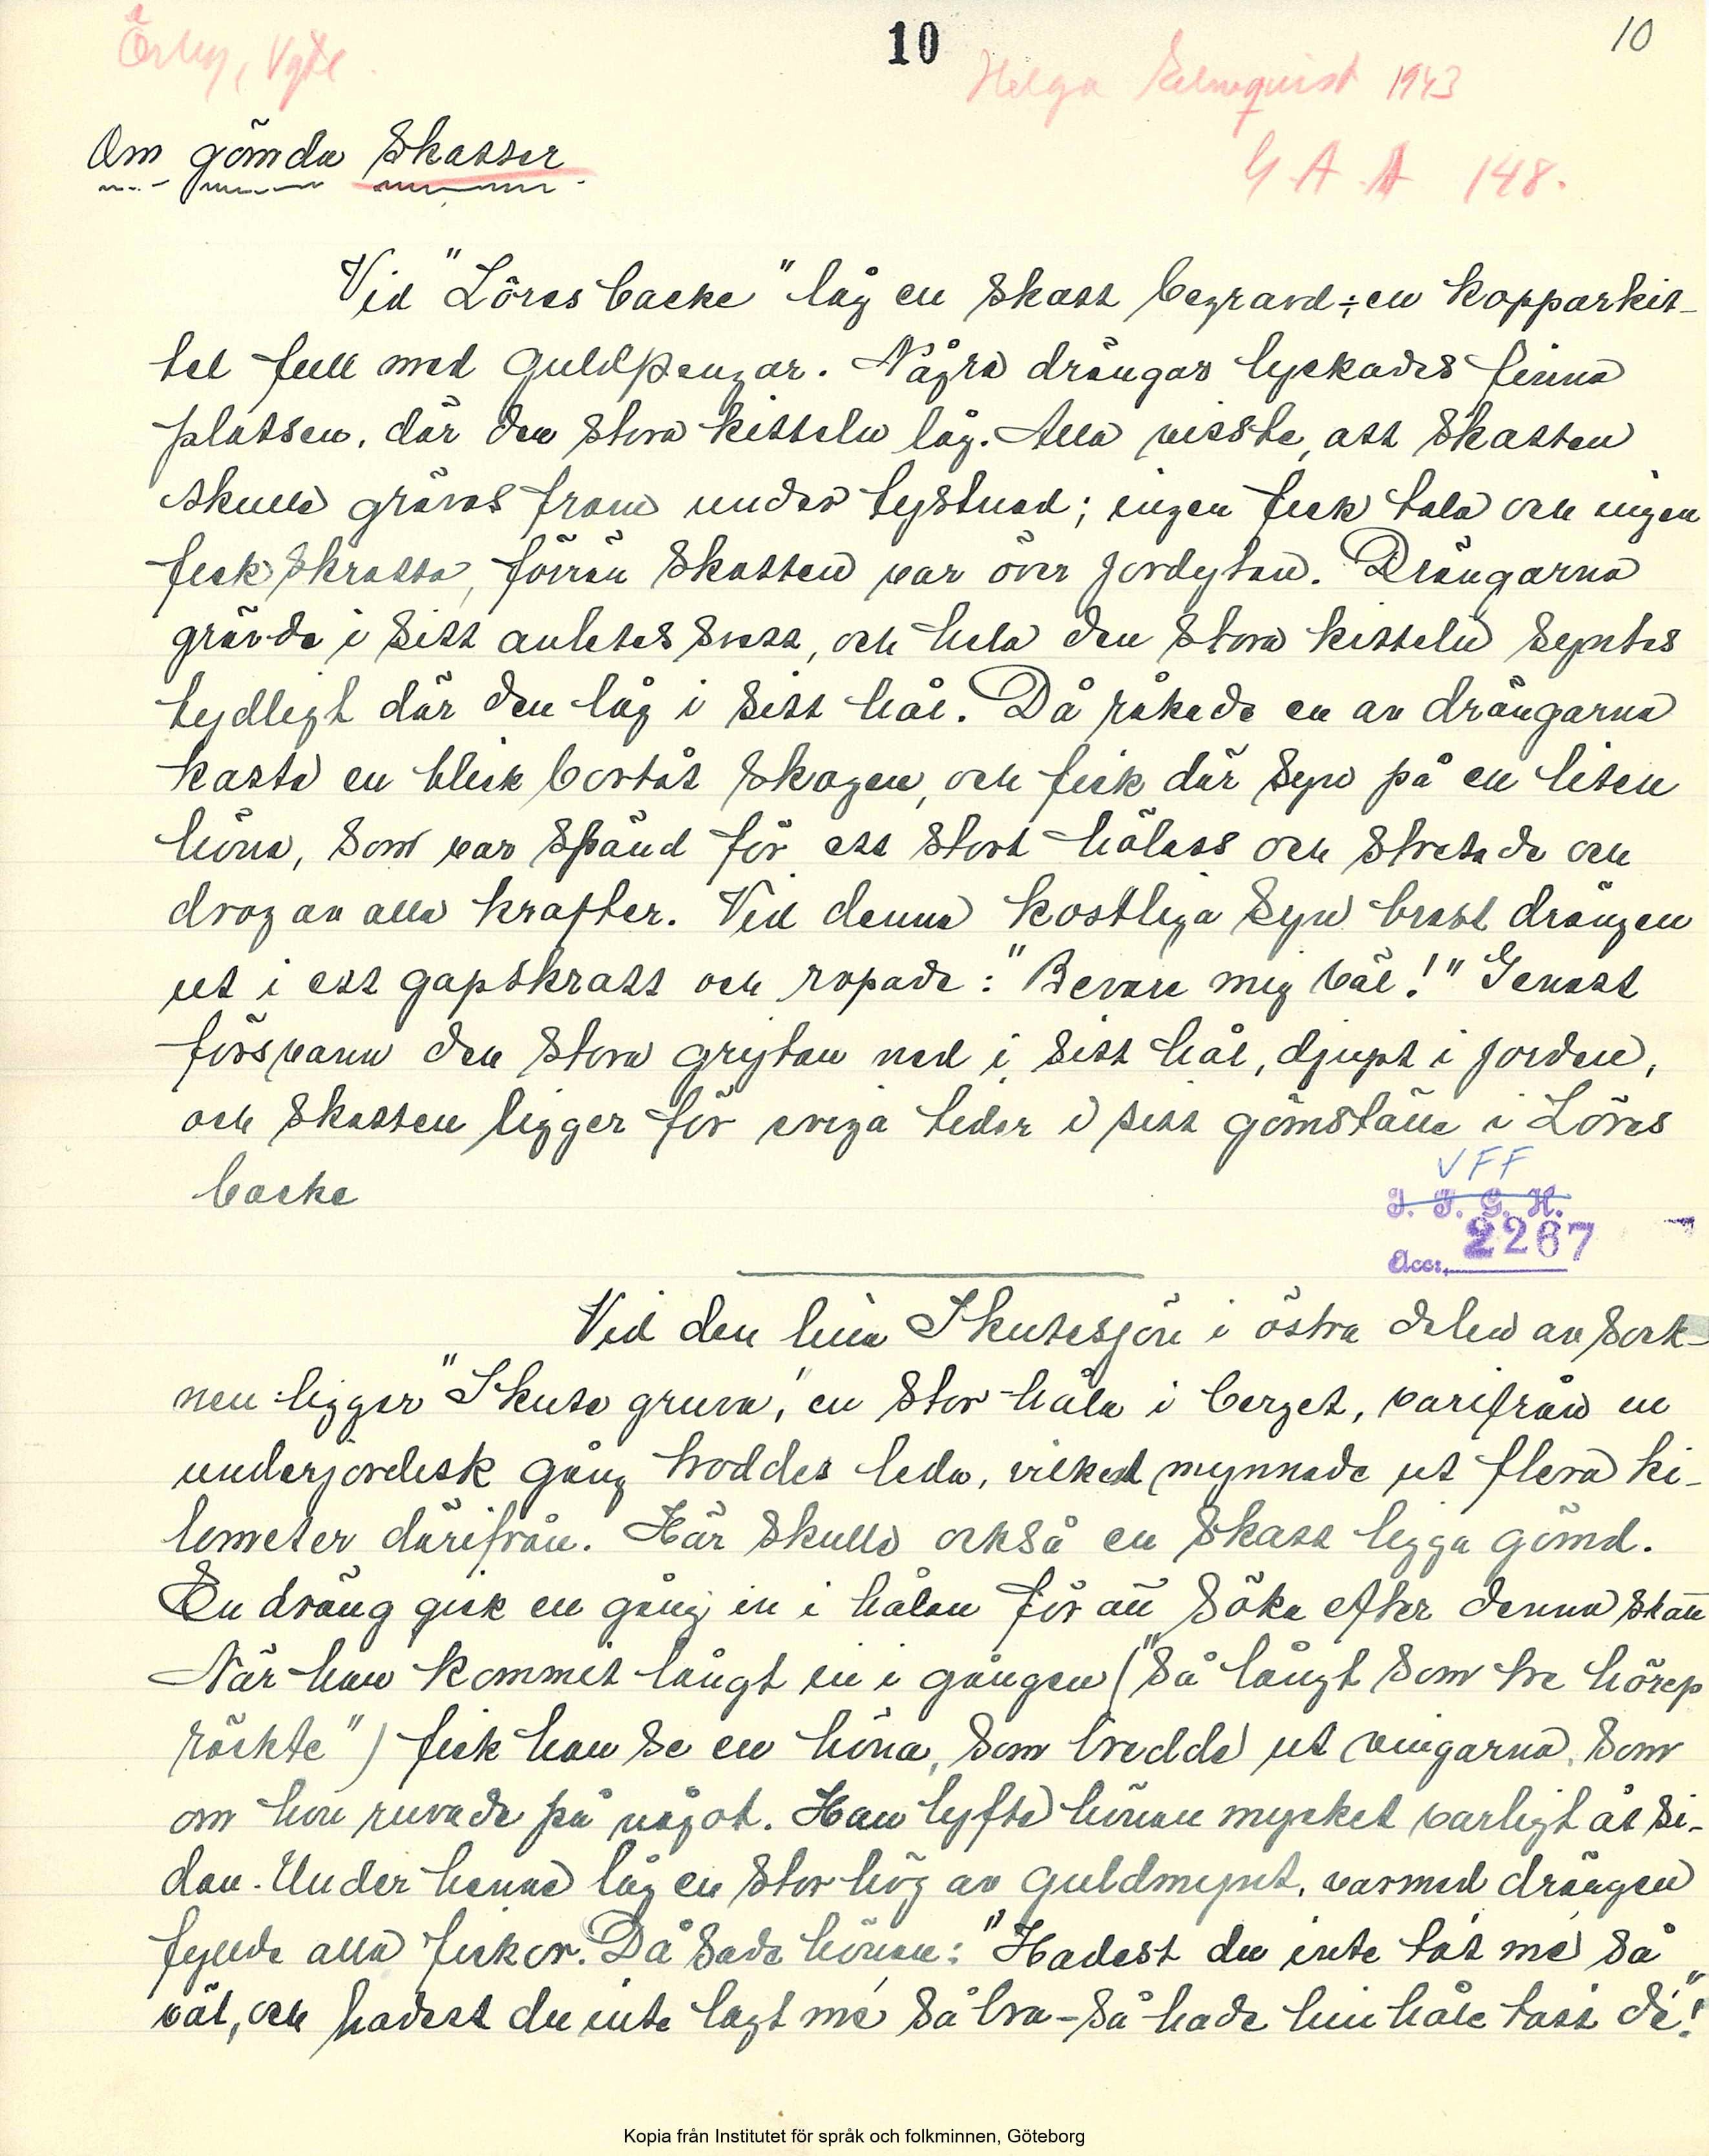 Örby, Vgtl.
10
10
Helga 1943
G A A 148.
Om gömda skatter
Vid "Löres backe" låg en skatt begravd; en kopparkit-
tel full med guldpengar. Några drängar lyckades finna
platsen, där den stora kitteln låg. Alla visste, att skatten
skulle grävas fram under tystnad; ingen fick tala och ingen
fick skratta, förrän skatten var över jordytan. Drängarna
grävde i sitt anletes svett, och hela den stora kitteln syntes
tydligt där den låg i sitt hål. Då råkade en av drängarna
kasta en blick bortåt skogen, och fick där syn på en liten
höna, som var spänd för ett stort hölass och stretade och
drog av alla krafter. Vid denna kostliga syn brast drängen
ut i ett gapskratt och ropade: "Bevare mig väl!" Genast
försvann den stora grytan ned i sitt hål, djupt i jorden,
och skatten ligger för eviga tider i sitt gömställe i Löres
backe
VFF
I. F. G. H.
Acc. 2267
Vid den lilla Skutesjön i östra delen av sock-
nen ligger "Skute gruva," en stor håla i berget, varifrån en
underjordisk gång troddes leda, vilket mynnade ut flera ki-
lometer därifrån. Här skulle också en skatt ligga gömd.
En dräng gick en gång in i hålan för att söka efter denna skatt
När han kommit långt in i gången ("så långt som tre hörep
räckte") fick han se en höna, som bredde ut vingarna, som
om hon ruvade på något. Han lyfte hönan mycket varligt åt si-
dan. Under henne låg en stor hög av guldmynt, varmed drängen
fyllde alla fickor. Då sade hönan: "Hadest du inte tat mé så
väl, och hadest du inte lagt mé så bra - så hade hin håle tatt dé!"
Kopia från Institutet för språk och folkminnen, Göteborg